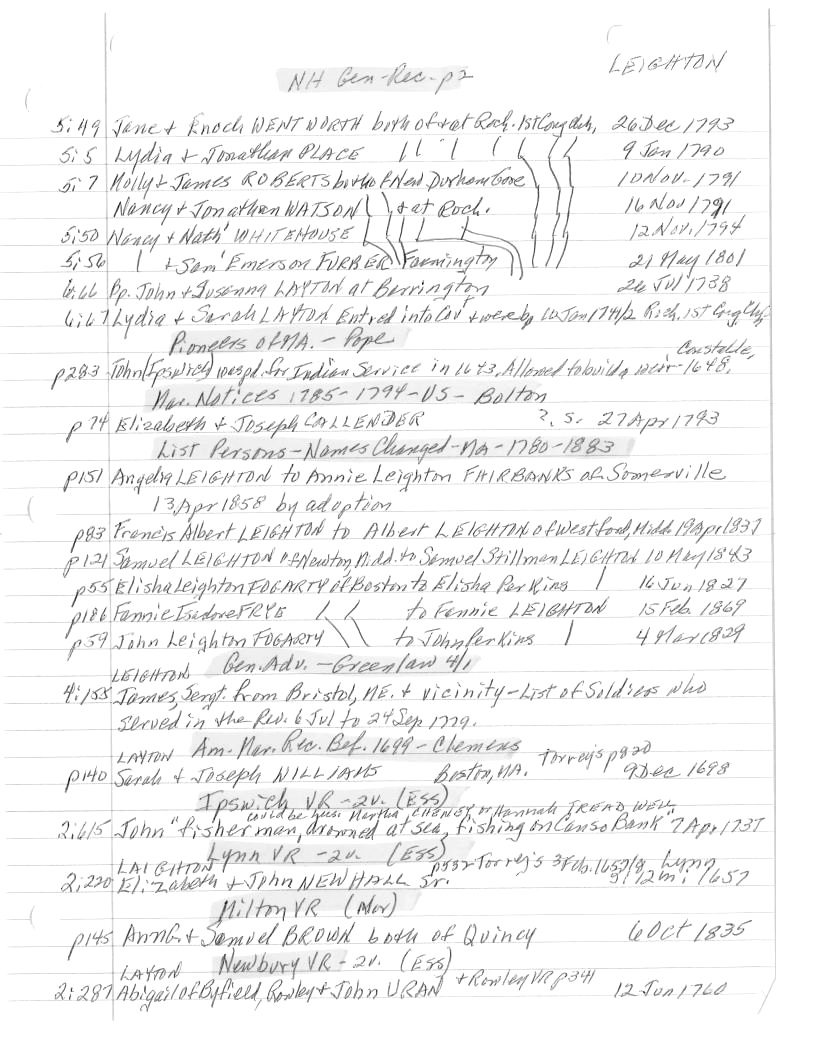 LEIGHTON
NH Gen-Rec-p2
5:49 Jane + Enoch WENTWORTH both of + at Roch. 1st Cong Chh, 26 Dec 1793
5:5 Lydia + Jonathan PLACE 9 Jan 1790
5:7 Molly + James ROBERTS both of New Durham Gore 10 Nov. 1791
Nancy + Jonathan WATSON + at Roch. 16 Nov 1791
5:50 Nancy + Nath' WHITEHOUSE 12 Nov. 1794
5:56 + Sam' Emerson FURBER Farmington 21 May 1801
6:66 Bp. John + Susanna LAYTON at Barrington 26 Jul 1738
6:67 Lydia + Sarah LAYTON Entred into Cov' + were bp 10 Jan 1741/2 Rich. 1st Cong Chh
Pioneers of MA. - Pope
Constable,
p283 John (Ipswich) was pd. for Indian Service in 1643, Allowed to build a weir - 1648,
Mar. Notices 1785-1794-US - Bolton
p74 Elizabeth + Joseph CALLENDER ?. S. 27 Apr 1793
List Persons - Names Changed - MA - 1780-1883
p151 Angelia LEIGHTON to Annie Leighton FAIRBANKS of Somerville
13 Apr 1858 by adoption
p83 Francis Albert LEIGHTON to Albert LEIGHTON of Westford, Midd. 19 Apr 1837
p121 Samuel LEIGHTON of Newton, Midd. to Samuel Stillman LEIGHTON 10 May 1843
p55 Elisha Leighton FOGARTY of Boston to Elisha Perkins 16 Jun 1827
p186 Fannie Isadore FRYE to Fannie LEIGHTON 15 Feb. 1869
p59 John Leighton FOGARTY to John Perkins 4 Mar 1829
LEIGHTON Gen. Adv. - Greenlaw 4/1
4:155 James, Sergt. from Bristol, ME. + vicinity - List of Soldiers who
served in the Rev. 6 Jul to 24 Sep 1779.
LAYTON Am. Mar. Rec. Bef. 1699 - Clemens
Torrey's p820
p140 Sarah + Joseph WILLIAMS Boston, MA. 9 Dec 1698
Ipswich VR - 2v. (ESS)
could be hus. Martha CHENEY or Hannah TREADWELL
2:615 John "fisherman, drowned at sea, fishing on Canso Bank" 7 Apr 1737
Lynn VR - 2v. (ESS)
LAIGHTON p532 Torrey's 3 Feb. 1657/8 Lynn
2:220 Elizabeth + John NEWHALL Sr. 12m: 1657
Milton VR (Nor)
p145 Ann G. + Samuel BROWN both of Quincy 6 Oct 1835
LAYTON Newbury VR - 2v. (ESS)
+ Rowley VR p341
2:287 Abigail of Byfield, Rowley + John URAN 12 Jun 1760